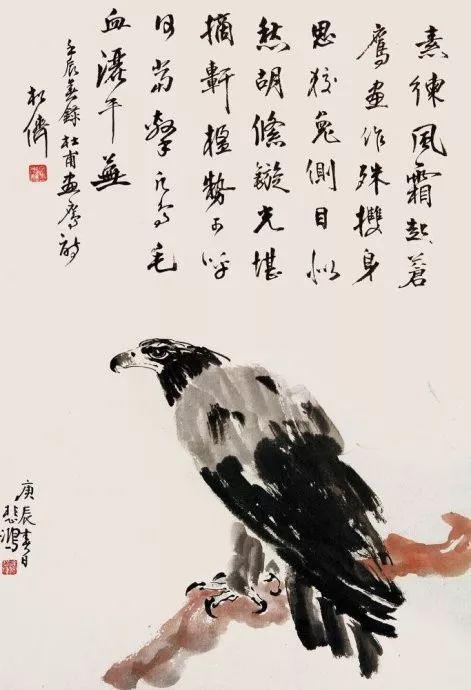 素練風霜起蒼
鷹畫作殊㩳身
思狡兔側目似
愁胡絛鏇光堪
摘軒楹勢可呼
何當擊凡鳥毛
血灑平蕪
壬辰錄杜甫畫鷹詩
松
庚辰春日
悲鴻